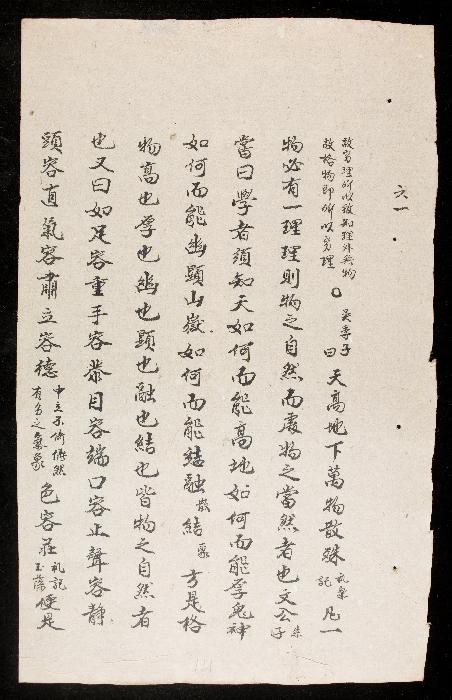 六一
故窮理所以致知理外無物
故格物即所以窮理
○吳季子曰天高地下萬物散殊礼樂記凡一
物必有一理理則物之自然而處物之當然者也文公朱子
嘗曰學者須知天如何而能高地如何而能厚鬼神
如何而能幽顯山嶽如何而能結融散結聚方是格
物高也厚也幽也顯也融也結也皆物之自然者
也又曰如足容重手容恭目容端口容止聲容静
頭容直氣容肅立容德中立不倚儼然有多之氣象色容莊礼記玉藻便是